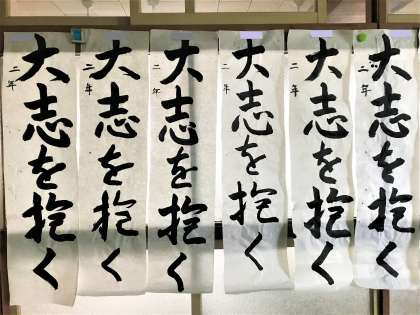 大志を抱く
二年
大志を抱く
二年
大志を抱く
二年
大志を抱く
二年
大志を抱く
二年
大志を抱く
二年